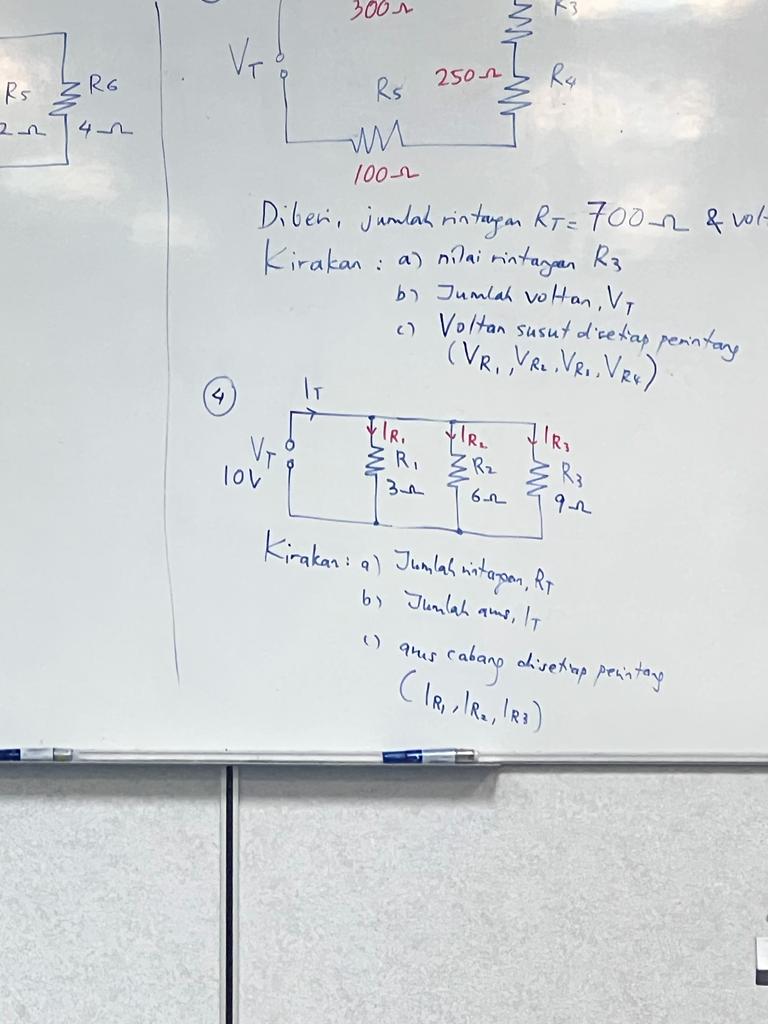 300Ω
R3
VT
250Ω
R4
R5
100Ω
R5
R6
2Ω
4Ω
Diberi, jumlah rintangan RT = 700Ω & vol
Kirakan : a) nilai rintangan R3
b) Jumlah voltan, VT
c) Voltan susut disetiap perintang
(VR1, VR2, VR3, VR4)
4
IT
VT
10V
IR1
IR2
IR3
R1
R2
R3
3Ω
6Ω
9Ω
Kirakan : a) Jumlah rintangan, RT
b) Jumlah arus, IT
c) arus cabang disetiap perintang
(IR1, IR2, IR3)